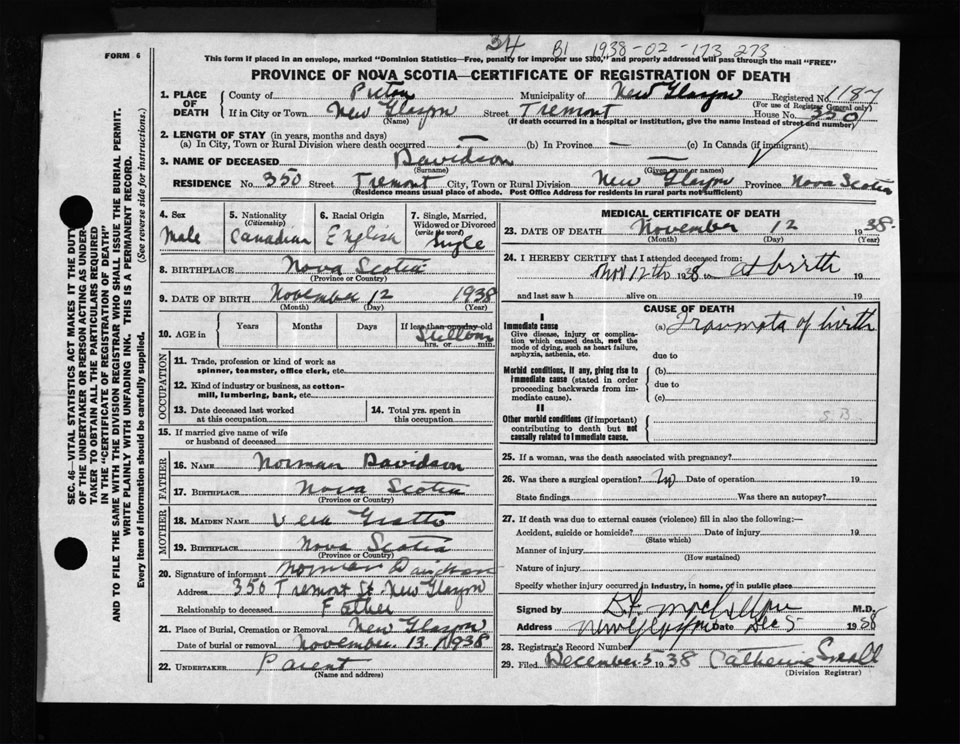 34 B1 1938-02-173 273
FORM 6
This form if placed in an envelope, marked "Dominion Statistics—Free, penalty for improper use $300," and properly addressed will pass through the mail "FREE"
PROVINCE OF NOVA SCOTIA—CERTIFICATE OF REGISTRATION OF DEATH
1. PLACE OF DEATH
County of Pictou Municipality of New Glasgow Registered No. 1187
(For use of Registrar General only)
If in City or Town New Glasgow Street Tremont House No. 350
(Name) (If death occurred in a hospital or institution, give the name instead of street and number)
2. LENGTH OF STAY (in years, months and days)
(a) In City, Town or Rural Division where death occurred — (b) In Province — (c) In Canada (if immigrant)
3. NAME OF DECEASED Davidson —
(Surname) (Given name or names)
RESIDENCE No. 350 Street Tremont City, Town or Rural Division New Glasgow Province Nova Scotia
(Residence means usual place of abode. Post Office Address for residents in rural parts not sufficient)
4. Sex
Male
5. Nationality
(Citizenship)
Canadian
6. Racial Origin
English
7. Single, Married, Widowed or Divorced
(write the word)
Single
8. BIRTHPLACE Nova Scotia
(Province or Country)
9. DATE OF BIRTH November 12 1938
(Month) (Day) (Year)
10. AGE in
Years Months Days If less than one day old
Stillborn
hrs. or min.
OCCUPATION
11. Trade, profession or kind of work as
spinner, teamster, office clerk, etc.
12. Kind of industry or business, as cotton-
mill, lumbering, bank, etc.
13. Date deceased last worked
at this occupation
14. Total yrs. spent in
this occupation
15. If married give name of wife
or husband of deceased
FATHER
16. NAME Norman Davidson
17. BIRTHPLACE Nova Scotia
MOTHER
18. MAIDEN NAME Vera Gratto
19. BIRTHPLACE Nova Scotia
(Province or Country)
20. Signature of informant Norman Davidson
Address 350 Tremont St. New Glasgow
Relationship to deceased Father
21. Place of Burial, Cremation or Removal New Glasgow
Date of burial or removal November 13, 1938
22. UNDERTAKER Parent
(Name and address)
MEDICAL CERTIFICATE OF DEATH
23. DATE OF DEATH November 12 1938.
(Month) (Day) (Year)
24. I HEREBY CERTIFY that I attended deceased from:
Nov 12th 1938 to at birth 19
and last saw h alive on 19
CAUSE OF DEATH
I
Immediate cause
Give disease, injury or complication which caused death, not the mode of dying, such as heart failure, asphyxia, asthenia, etc.
(a) Traumata of birth
due to
Morbid conditions, if any, giving rise to immediate cause (stated in order proceeding backwards from immediate cause).
(b)
due to
(c)
II
Other morbid conditions (if important) contributing to death but not causally related to immediate cause.
S B
25. If a woman, was the death associated with pregnancy?
26. Was there a surgical operation? No Date of operation 19
State findings Was there an autopsy?
27. If death was due to external causes (violence) fill in also the following:—
Accident, suicide or homicide? Date of injury 19
(State which)
Manner of injury
(How sustained)
Nature of injury
Specify whether injury occurred in industry, in home, or in public place
Signed by M.D.
Address New Glasgow Date Dec 5 1938
28. Registrar's Record Number
29. Filed December 5 1938 Catherine Small
(Division Registrar)
SEC. 46—VITAL STATISTICS ACT MAKES IT THE DUTY
OF THE UNDERTAKER OR PERSON ACTING AS UNDER-
TAKER TO OBTAIN ALL THE PARTICULARS REQUIRED
IN THE "CERTIFICATE OF REGISTRATION OF DEATH"
AND TO FILE THE SAME WITH THE DIVISION REGISTRAR WHO SHALL ISSUE THE BURIAL PERMIT.
WRITE PLAINLY WITH UNFADING INK. THIS IS A PERMANENT RECORD.
Every item of information should be carefully supplied. (See reverse side for instructions.)